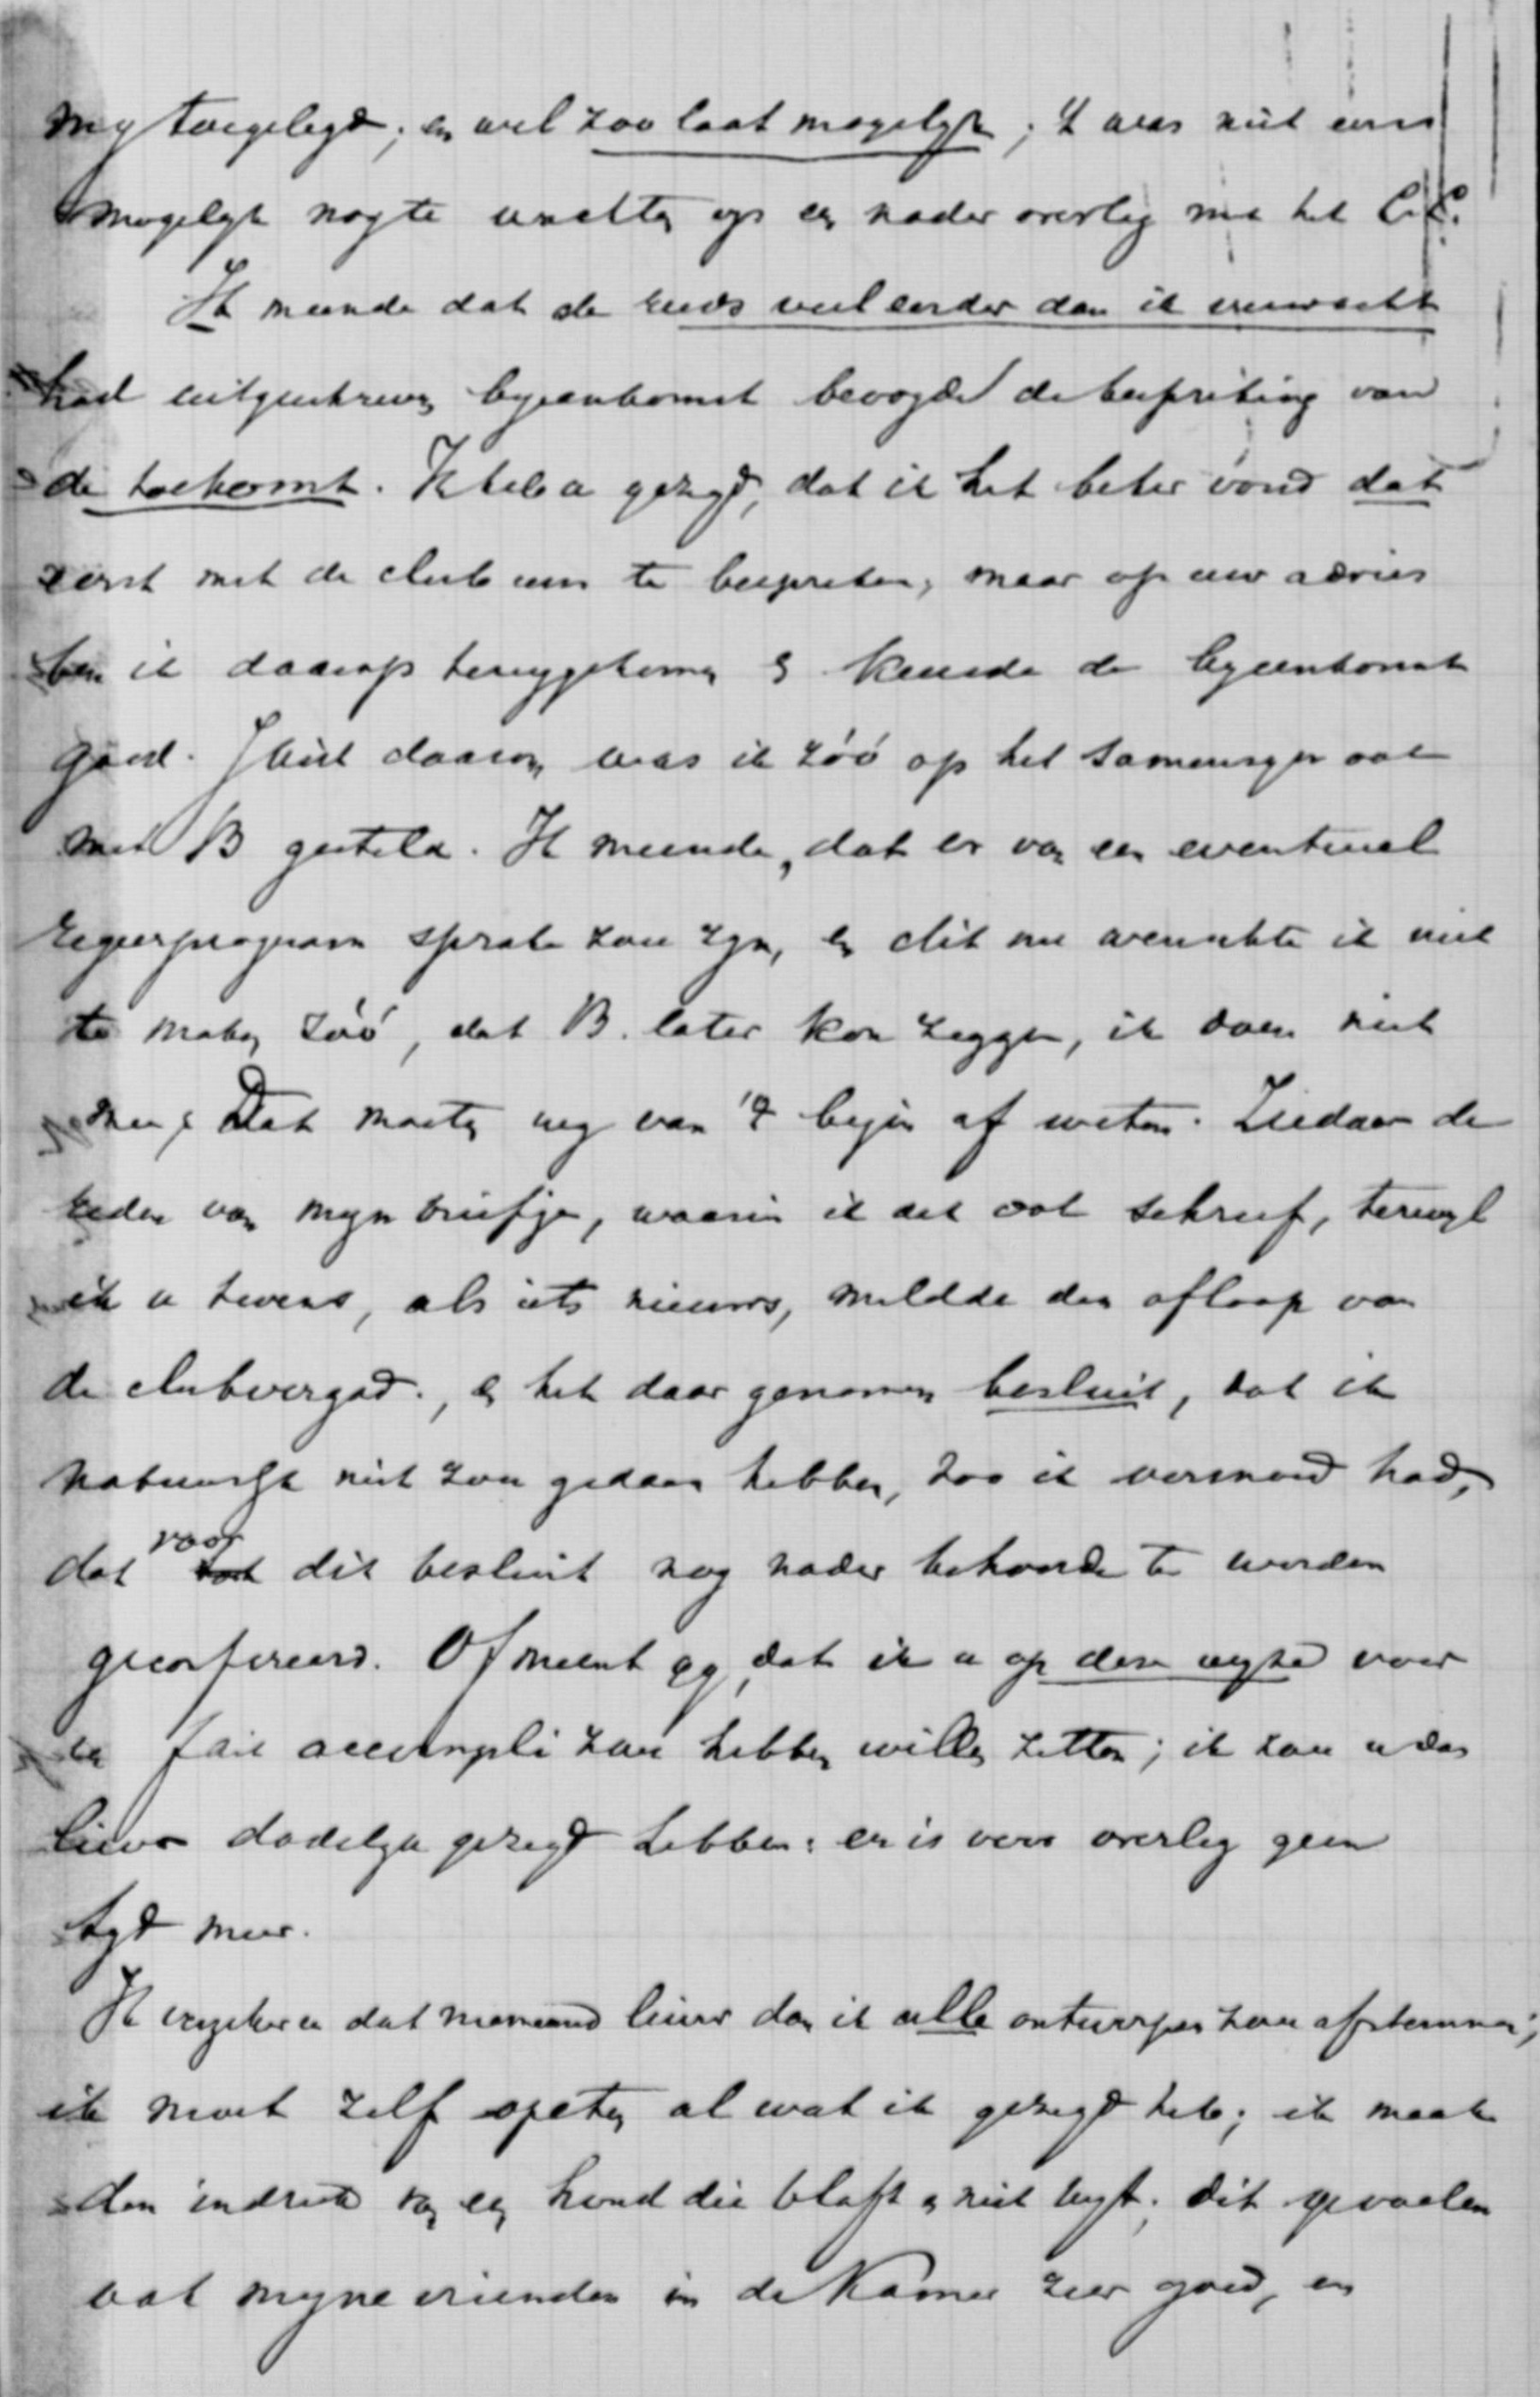 my toegelegd; en wel zoo laat mogelyk; 't was niet eens
mogelyk nog te wachten op een nader overleg met het C.C.
Ik meende dat de reeds veel eerder dan ik verwacht
had uitgeschreven byeenkomst beoogde de bespreking van
de toekomst. Ik heb u gezegd, dat ik het beter vond dat
eerst met de club eens te bespreken, maar op uw advies
ben ik daarop teruggekomen & keurde de byeenkomst
goed. Juist daarom was ik zóó op het samenzyn ook
met B gesteld. Ik meende, dat er van een eventueel
regeerprogram sprake zou zyn, en dit nu wenschte ik niet
te maken zóó, dat B. later kon zeggen, ik doe niet
mee; Dat moeten wy van 't begin af weten. Ziedaar de
reden van myn briefje, waarin ik dit ook schreef, terwyl
ik u tevens, als iets nieuws, meldde den afloop van
de clubvergad., & het daar genomen besluit, dat ik
natuurlyk niet zou gedaan hebben, zoo ik vermoed had,
dat voor dit besluit nog nader behoorde te worden
geconfereerd. Of meent gy, dat ik u op deze wyze voor
een fait accompli zou hebben willen zetten; ik zou u dan
liever dadelyk gezegd hebben: er is voor overleg geen
tyd meer.
Ik verzeker u dat niemand liever dan ik alle ontwerpen zou afstemmen;
ik moet zelf opeten al wat ik gezegd heb; ik maak
den indruk van een hond die blaft & niet byt; dit gevoelen
ook myne vrienden in de Kamer zeer goed, en